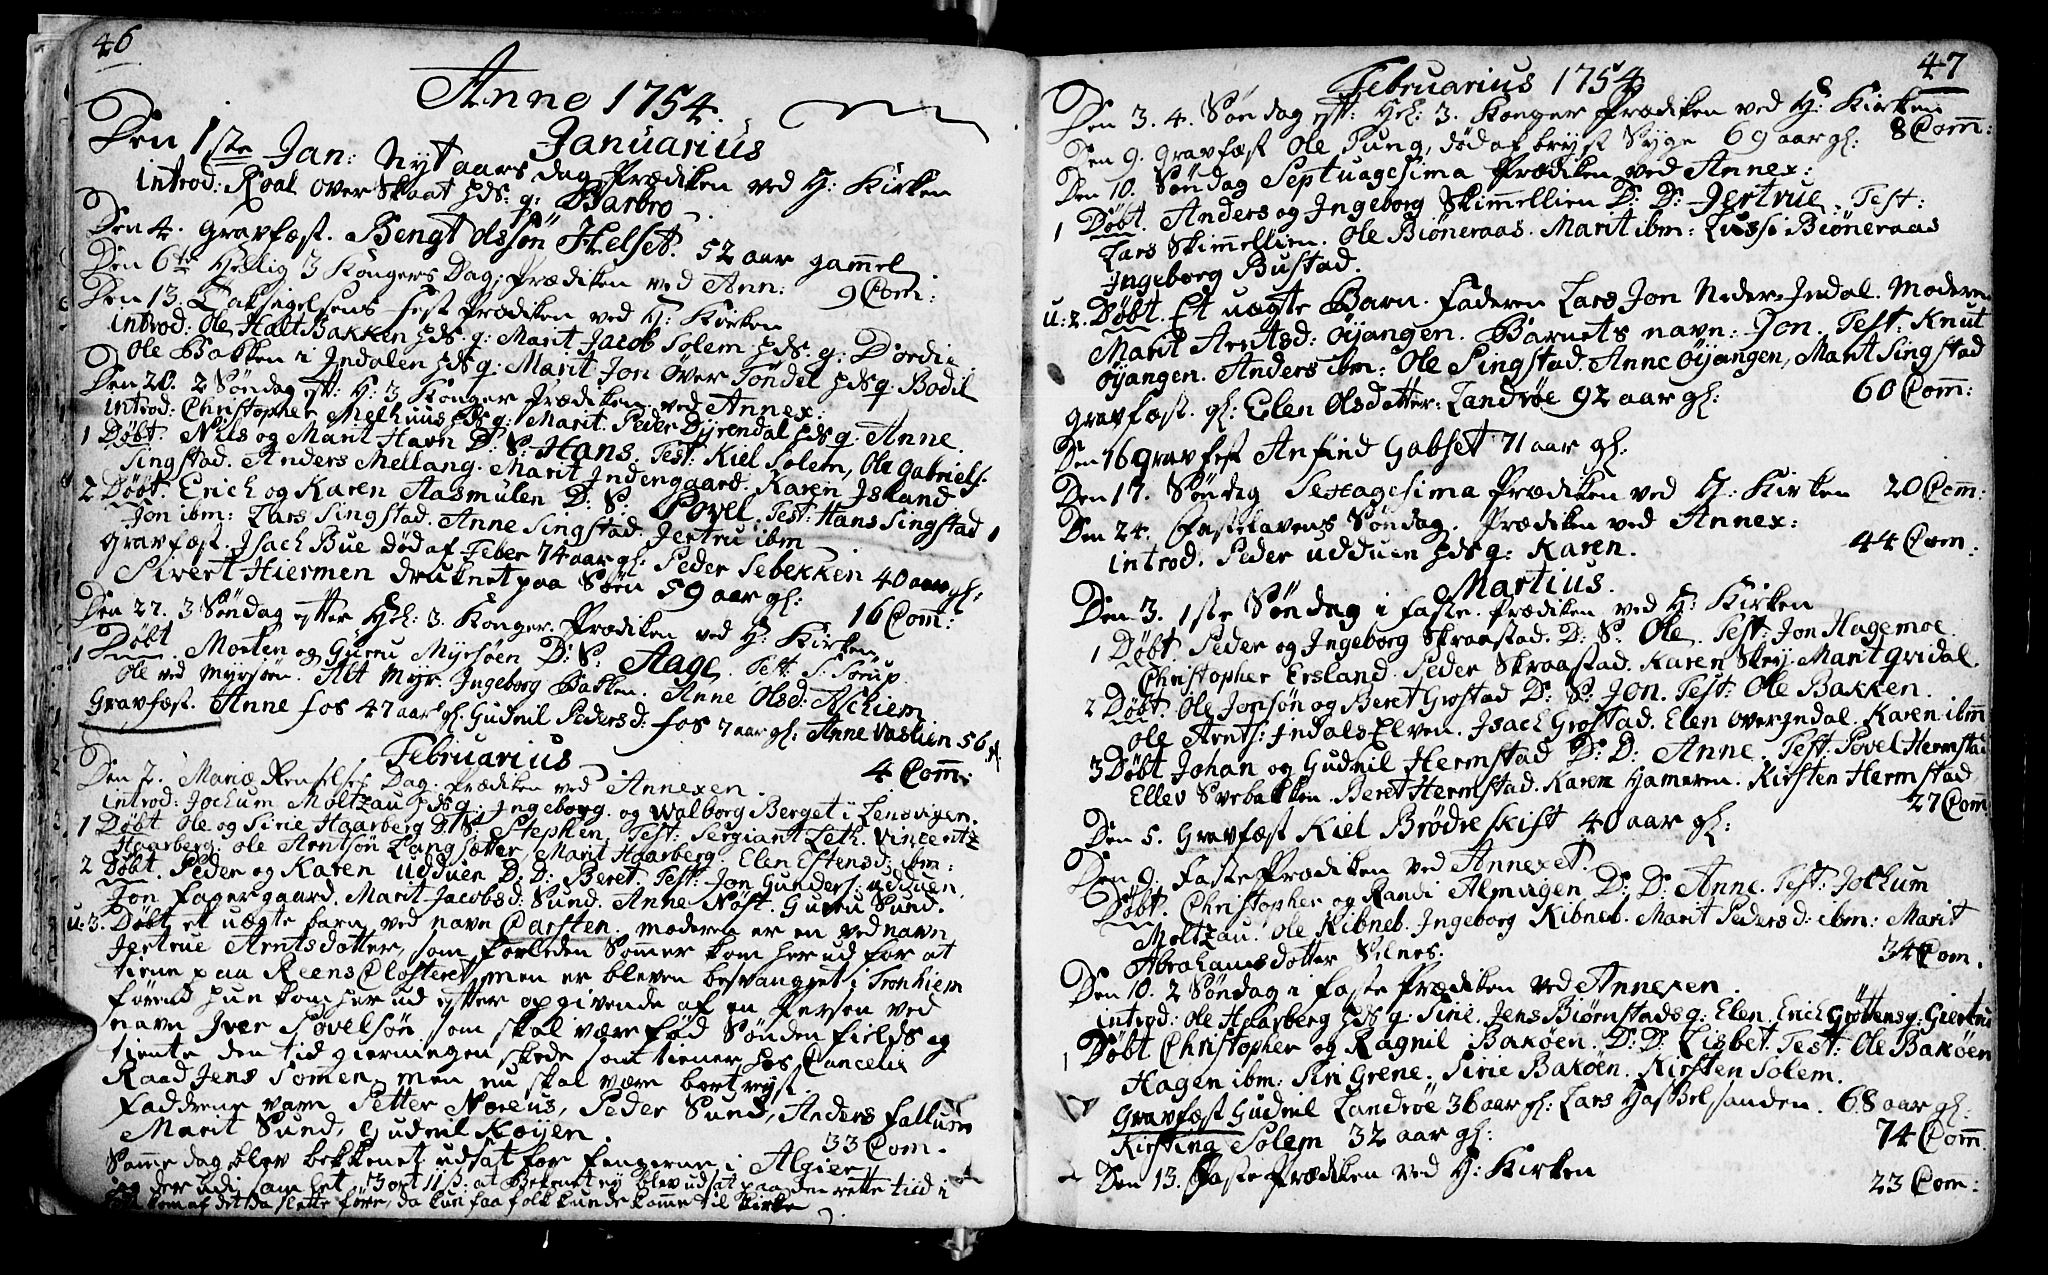 46
Anno 1754.
Januarius
Den 1ste Jan: Nyt aars dag Prædiken ved H: Kirken
introd: Roal over Skaat hds: q: Barbro
Den 4. gravfæst. Bengt Olssön Helset. 52 aar gammel.
Den 6te Hellig 3 Kongers Dag, Prædiken ved Ann: 9 Com:
Den 13. Taksigelsens fest Prædiken ved H: Kirken
introd: Ole Halt Bakken hds: q: Marit Jacob Solem hds: q: Dordie
Ole Bakken i Indalen hds q: Marit Jon Över Töndel hds q. Bodil
Den 20. 2 Söndag eft: H: 3 Konger Prædiken ved Annex:
introd: Christopher Melhuus hds q: Marit. Peder Dyrendal hds q. Anne
1 Döbt. Nils og Marit Havn D: S: Hans. Test: Kiel Solem, Ole Gabriels.
Singstad. Anders Mellang. Marit Indengaard. Karen Island
2 Döbt. Erich og Karen Aasmulen D: S: Povel. Test: Hans Singstad
Jon ibm: Lars Singstad. Anne Singstad. Jertru ibm
gravfæst. Isach Bue död af Feber 74 aar gl: Peder Sebekken 40 aar gl:
Sivert Hiermen druknet paa Söen 59 aar gl: 16 Com:
Den 27. 3 Söndag efter Hel: 3. Konger. Prædiken ved H: Kirken
1 Döbt. Morten og Guru Myrsöen D: S: Aage. Test: S. Sörup
Ole ved Myrsöen. Alt Myr. Ingeborg Bakken. Anne Olsd: Aschiem
Gravfæst. Anne fos 47 aar gl. Gudnil Pedersd: fos 7 aar gl: Anne Vaslien 56
Februarius
Den 2. Mariæ Renselses Dag. Prædiken ved Annexen. 4 Com:
introd: Jochum Moltzau hds q: Ingeborg. og Walborg Berget i Lensvigen.
1 Döbt Ole og Sirie Haarberg D: S: Stephen, Test: Sergiant Leth. Vincentz
Haarberg: Ole Arntsön Langsætter, Marit Haarberg Elen Estensd: ibm:
2 Döbt. Peder og Karen udduen D: D: Beret Test: Jon Gunders: udduen
Jon Fagergaard. Marit Jacobsd: Sund. Anne Nöst. Guru Sund.
u: 3. Döbt et uægte barn ved navn Carsten. moderen er en ved navn
Jertrue Arntsdotter, som forleden Sommer kom her ud for at
tiene paa Reens Closteret, men er bleven besvangret i Tronhiem
förend hun kom her ud efter opgivende af en Person ved
navn Iver Povelsön som skal være föd Sönden fields og
tiente den tid gierningen skede som tiener hos Cancelie
Raad Jens Sommer, men nu skal være bortreyst.
Faddrene vare Petter Noreus, Peder Sund, Anders Fallum
Marit Sund, Gudnil Röyen. 33 Com.
Samme dag blev bekkenet udsat for fangerne i Algier
og der udi samlet 3 ort 11 s: at Bekenet ey blev udsat paa den rette tiid i
kom af det Ba slette före, da kun faa folk kunde komme til Kirke
47
Februarius 1754
Den 3. 4. Söndag eft: Hel: 3. Konger Prædiken ved H: Kirken
Den 9. gravfæst Ole Pung, död af bryst Syge 69 aar gl: 8 Com:
Den 10. Söndag Septuagesima Prædiken ved Annex:
1 Döbt. Anders og Ingeborg Skimellien D: D: Jertrue. Test:
Lars Skimellien. Ole Biöneraas. Marit ibm: Lussi Biöneraas
Ingeborg Bustad.
u: 2. Döbt. Et uægte Barn. Faderen Lars Jon Neder Indal. Moderen
Marit Arntsd: Öyangen. Barnets navn: Jon. Test: Knut
Öyangen. Anders ibm: Ole Singstad. Anne Öyangen, Marit Singstad
gravfæst. gl: Elen Olsdotter: Landröe 92 aar gl: 60 Com:
Den 16 gravfest Anfind Gabset 71 aar gl:
Den 17. Söndag Sexagesima Prædiken ved H: Kirken 20 Com:
Den 24. Fastelavens Söndag. Prædiken ved Annex:
introd. Peder udduen hds q: Karen. 44 Com:
Martius.
Den 3. 1ste Söndag i faste. Prædiken ved H: Kirken
1 Döbt Peder og Ingeborg Skraastad. D: S: Ole. Test: Jon Hagemoe
Christopher Ersland. Peder Skraastad. Karen Skey. Marit Gridal.
2 Döbt. Ole Jonsön og Beret Grostad D: S: Jon. Test: Ole Bakken.
Ole Arnts: Indals Elven. Isach Grostad. Elen over Indal. Karen ibm
3 Döbt Johan og Gudnil Hermstad D: D: Anne. Test: Povel Hermstad
Ellev Svebakken. Beret Hermstad. Karen Hameren. Kirsten Hermstad,
27 Com
Den 5. Gravfæst Kiel Brödreskift 40 aar gl:
Den 9. Faste Prædiken ved Annexet.
Döbt. Christopher og Randi Almvigen D: D: Anne. Test: Jochum
Moltzau. Ole Kibneb. Ingeborg Kibneb. Marit Pedersd: ibm: Marit
Abrahamsdotter Selnes. 34 Com.
Den 10. 2 Söndag i faste Prædiken ved Annexen.
introd: Ole Haarberg hds q: Sirie. Jens Biörnstads q: Elen. Erich Gröttens q. Giertrue
1 Döbt Christopher og Ragnil Baköen. D: D: Lisbet. Test: Ole Baköen
Hagen ibm: Siri Grene. Sirie Baköen. Kirsten Solem.
Gravfæst Gudnil Landröe 36 aar gl: Lars Hasselsanden. 68 aar gl:
Kirstina Solem 32 aar gl: 74 Com
Den 13. Faste Prædiken ved H: Kirken
23 Com: